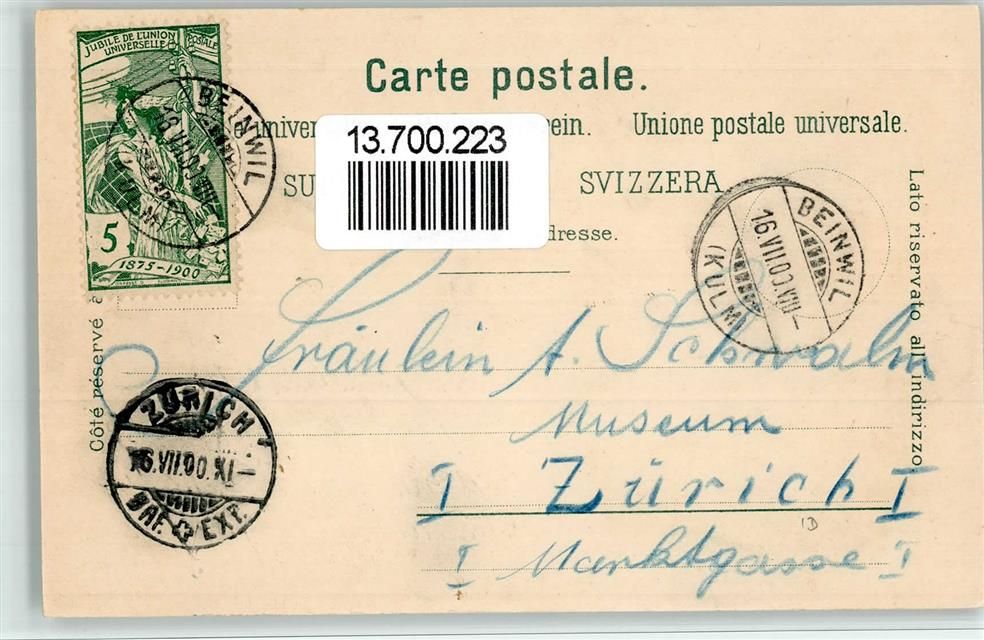 JUBILÉ DE L'UNION POSTALE
UNIVERSELLE
5
1875-1900
BEINWIL
16.VII.00.VIII-
(KULM)
Carte postale.
e univer ein. Unione postale universale.
13.700.223
SU SVIZZERA
dresse.
BEINWIL
16.VII.00.VIII-
(KULM)
Côté réservé à
Lato riservato all'indirizzo
Fräulein A. Schwalm
Museum
I Zürich I
I Marktgasse I
ZÜRICH 1
16.VII.00.XI-
BRF. EXP.